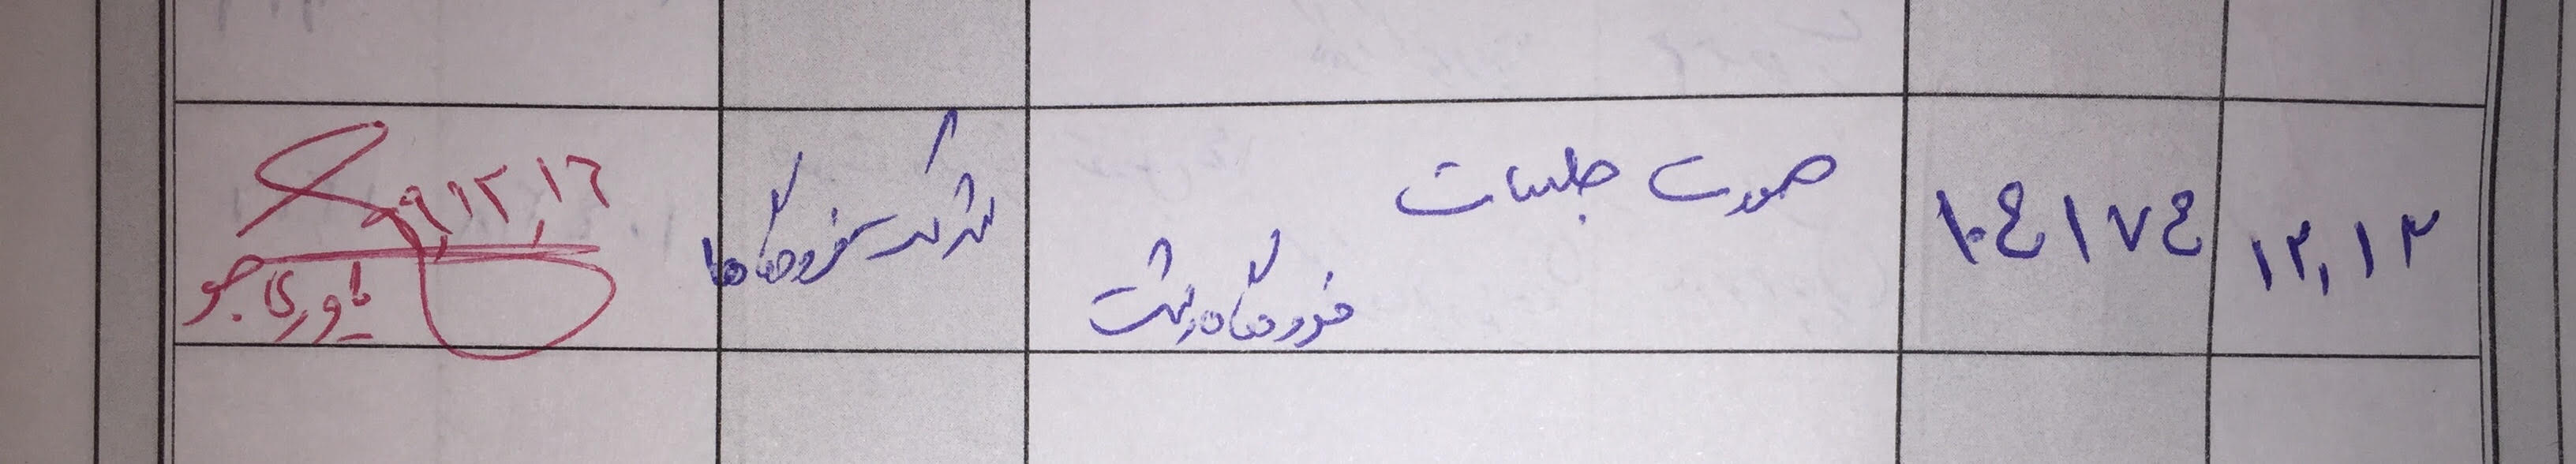 ۱۲,۱۳
۱۰۴۱۷۴
صورت جلسات
فرودگاه رشت
شرکت فرودگاه ها
۹,۱۲,۱۶
یاوری جو